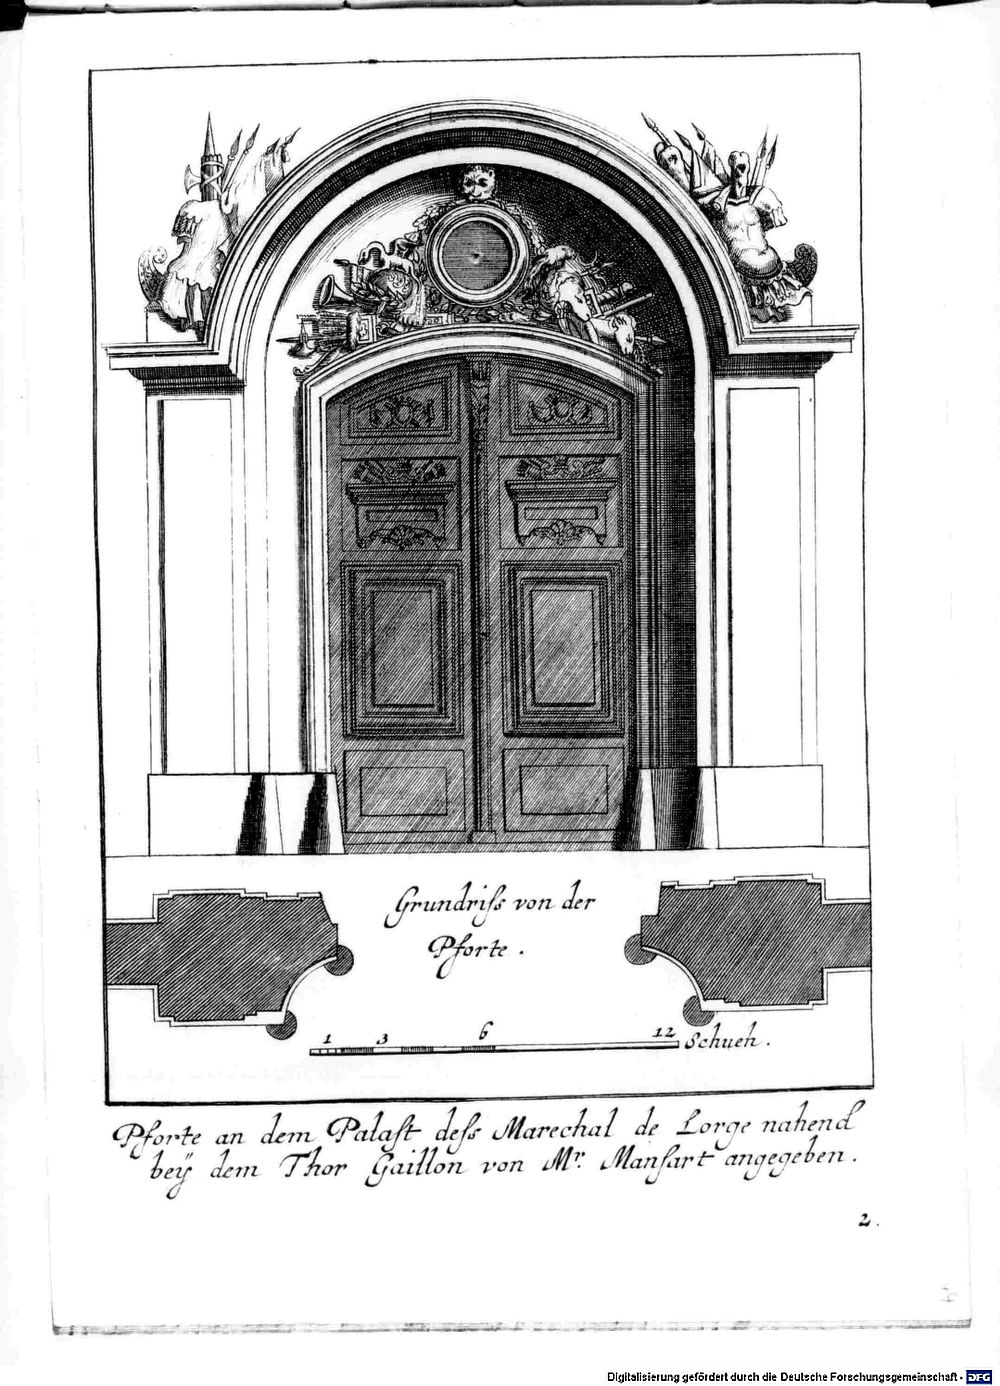 Grundriſs von der
Pforte .
1 3 6 12 Schueh .
Pforte an dem Palaſt deſs Marechal de Lorge nahend
beÿ dem Thor Gaillon von Mr. Manſart angegeben .
2.
Digitalisierung gefördert durch die Deutsche Forschungsgemeinschaft - DFG